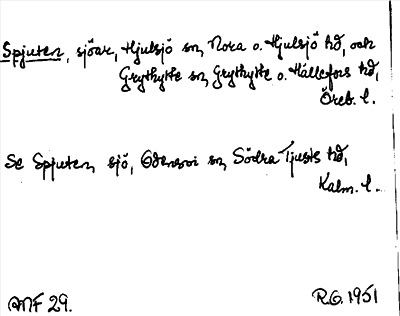 Spjuten, sjöar, Hjulsjö sn, Nora o. Hjulsjö hd, och
Grythytte sn, Grythytte o. Hällefors hd,
Öreb. l.
Se Spjuten, sjö, Odensvi sn, Södra Tjusts hd,
Kalm. l.
MF 29.
R.G. 1951